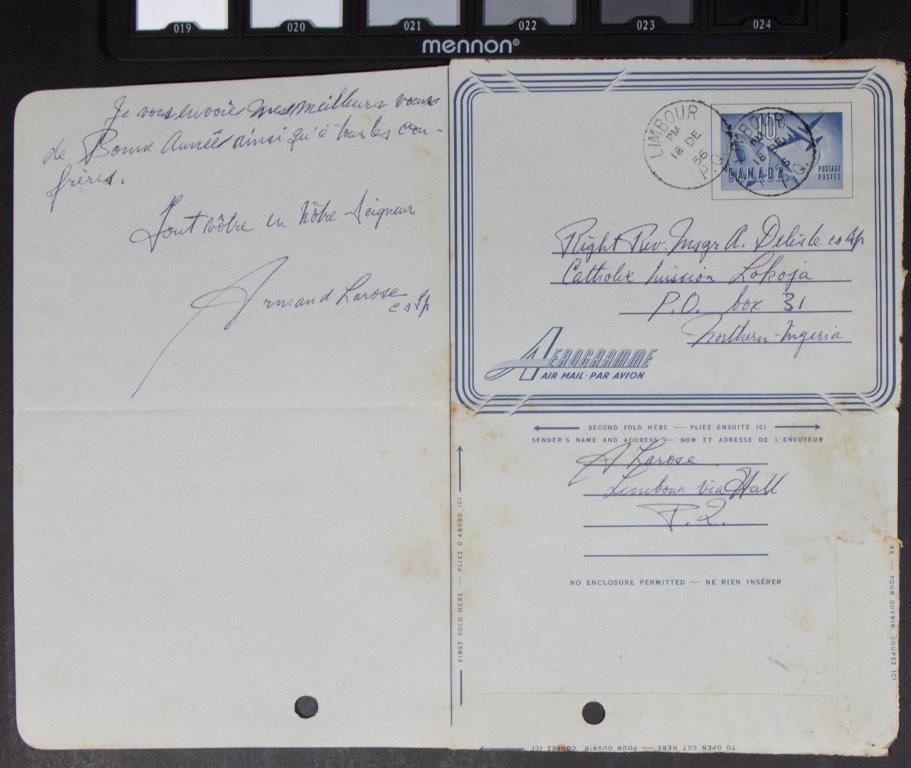 019 020 021 022 023 024
mennon®
Je vous envoie mes meilleurs voeux
de Bonne Année ainsi qu'à tous les con-
frères.
Tout vôtre en Nôtre-Seigneur
Armand Larose
c s Sp
LIMBOUR
PM
18 DE
56
P.Q.
LIMBOUR
PM
18 DE
56
P.Q.
10¢
CANADA
POSTAGE
POSTES
Right Rev. Msgr A. Delisle cs Sp
Catholic mission Lokoja
P.O. box 31
Northern-Nigeria
AEROGRAMME
AIR MAIL · PAR AVION
SECOND FOLD HERE — PLIEZ ENSUITE ICI
SENDER'S NAME AND ADDRESS — NOM ET ADRESSE DE L'ENVOYEUR
A Larose
Limbour via Hull
P.Q.
NO ENCLOSURE PERMITTED — NE RIEN INSÉRER
FIRST FOLD HERE — PLIEZ D'ABORD ICI
RE — POUR OUVRIR, COUPEZ ICI
TO OPEN CUT HERE — POUR OUVRIR, COUPEZ ICI